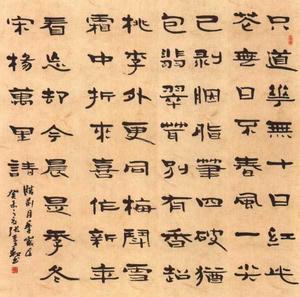 只道華無十日紅此
花無日不春風一尖
已剥胭脂筆四破猶
包翡翠茸别有香超
桃李外更同梅鬥雪
霜中折來喜作新年
看忘却今晨是季冬
宋楊萬里詩
臘前月季
癸未之